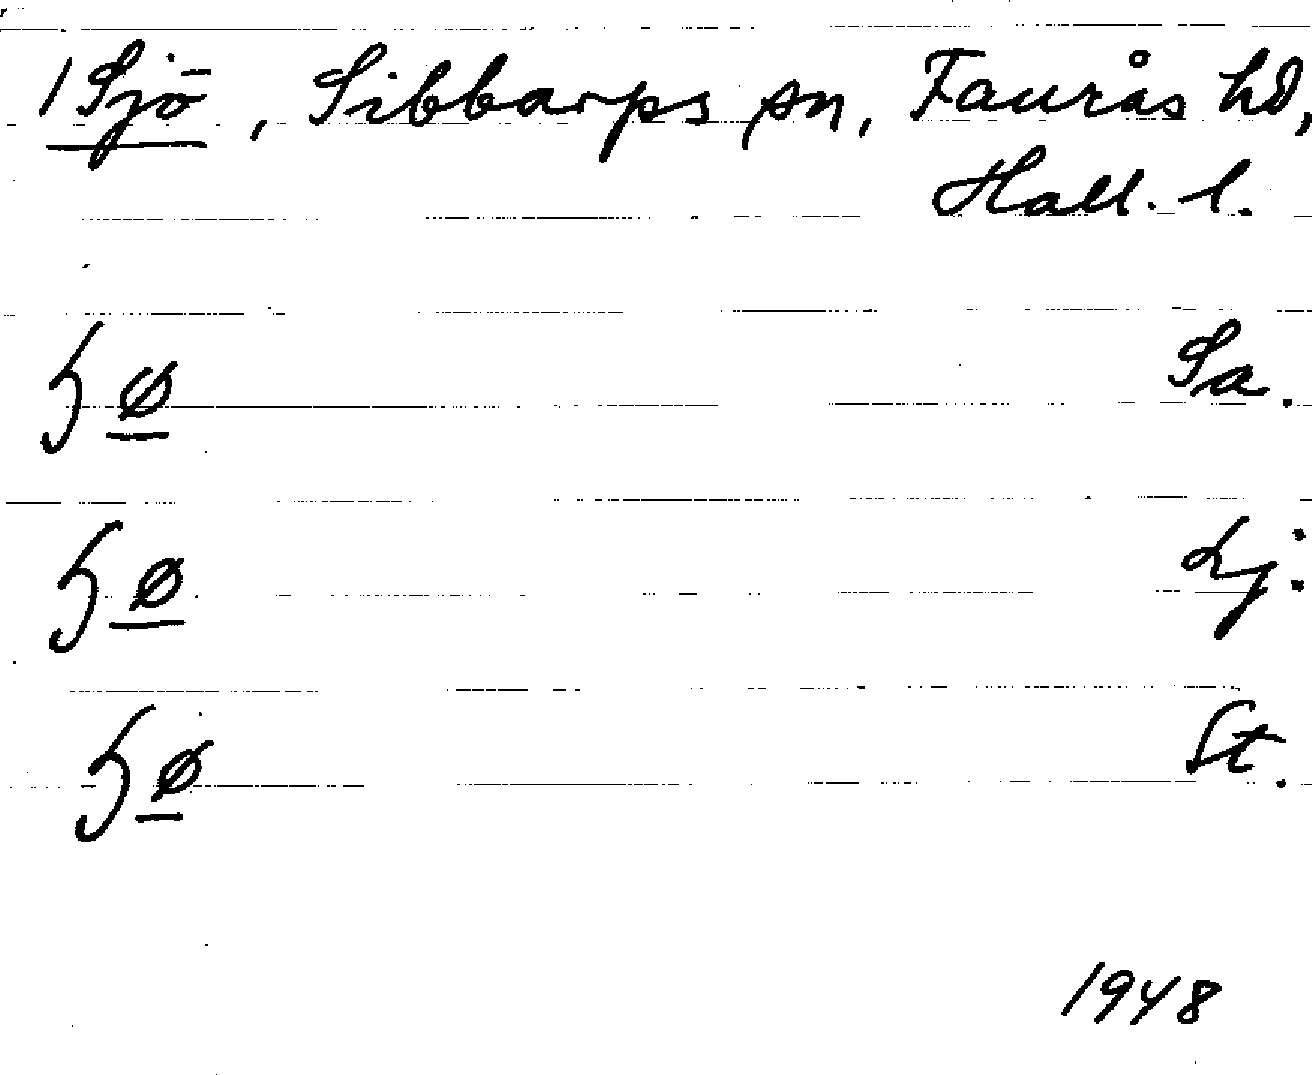 1 Sjö, Sibbarps sn, Faurås hd,
Hall. l.
ɧø Sa.
ɧø Lj:
ɧø St.
1948